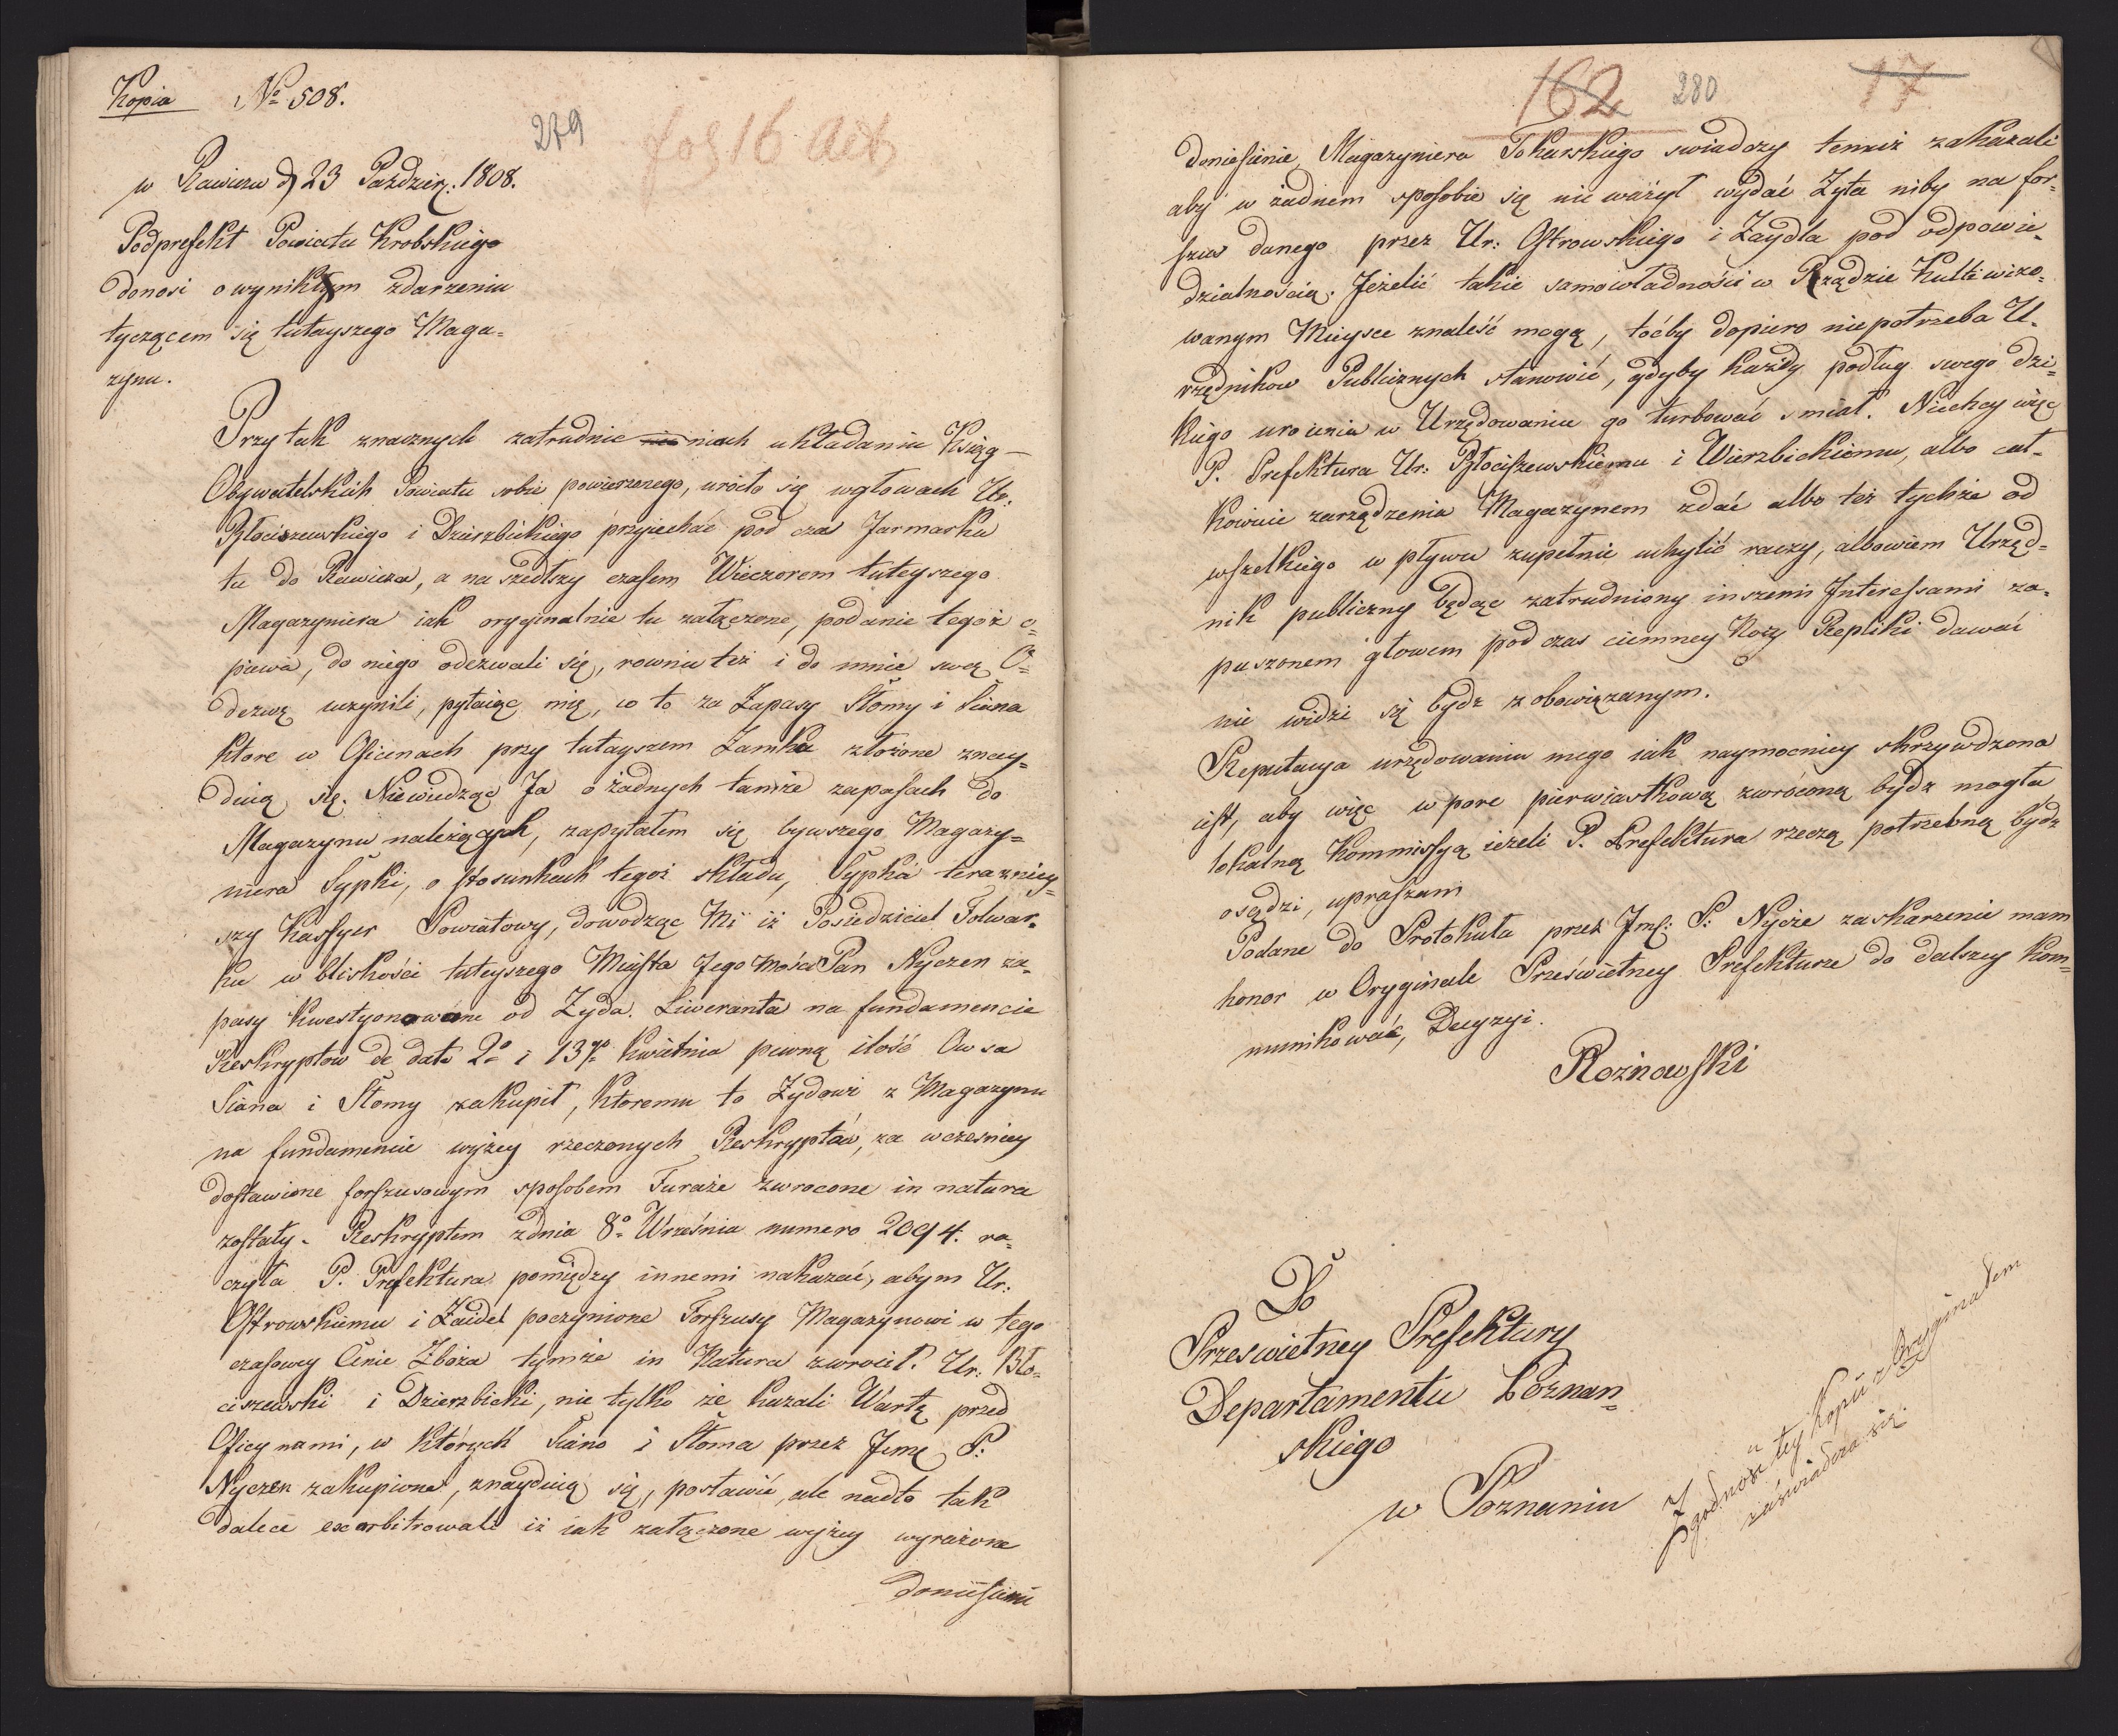 Kopia No 508.
279
fol 16 Act
w Rawiczu d 23 Paździer: 1808.
Podprefekt Powiatu Krobskiego
donosi o wynikłym zdarzeniu
tyczącem się tutayszego Maga-
zynu.
Przy tak znacznych zatrudnieniach układaniu Xsiąg
Obywatelskich Powiatu sobie powierzonego, uroiło się wgłowach Ur:
Błociszewskiego i Dzierzbickiego przyiechać pod czas Jarmarku
tu do Rawicza, a naszedłszy czasem Wieczorem tuteyszego
Magazyniera iak oryginalnie tu załączone, podanie tegoż o-
piewa, do niego odezwali się, rownie też i do mnie swą O-
dezwę uczynili, pytaiąc mię, co to za Zapasy Słomy i Siana
ktore w Oficinach przy tutayszem Zamku złożone znay-
duią się. Niewiedząc Ja o żadnych tamże zapasach do
Magazynu należących, zapytałem się bywszego Magazy-
niera Sypki, o stosunkach tegoż składu, Sypka terazniey-
szy Kassyer Powiatowy, dowodząc Mi iż Posiedziciel Folwar-
ku w bliskości tuteyszego Miasta Jego Mość Pan Nyczen za-
pasy kwestyonowane od Zyda Liweranta na fundamencie
Reskryptow de dato 2o i 13go Kwietnia pewną ilość Owsa
Siana i Słomy zakupił, ktoremu to Zydowi z Magazynu
na fundamencie wyżey rzeczonych Reskryptów, za wczesniey
dostawione forszusowym sposobem Furaże zwrocone in natura
zostały. Reskryptem zdnia 8o Września numero 2094. ra-
czyła P. Prefektura pomiędzy innemi nakazać, abym Ur:
Ostrowskiemu i Zaidel poczynione Forszusy Magazynowi w tego
czasowey Cenie Zboża tymże in Natura zwrocił. Ur: Bło-
ciszewski i Dzierzbicki, nie tylko że kazali Wartę przed
Oficynami, w których Siano i Słoma przez Jme P:
Nyczen zakupione, znayduią się, postawić, ale nadto tak
dalece exorbitrowali iż iak załączone wyżey wyrażone
doniesienie
162 280 17
doniesienie Magazyniera Tokarskiego swiadczy temuż zakazali
aby w żadnem sposobie się nie ważył wydać Zyta niby na for-
szus danego przez Ur: Ostrowskiego i Zaydla pod odpowie-
dzialnością. Jeżelić takie samowładności w Rządzie Kultiwizo-
wanym Mieysce znaleść mogą, toćby dopiero niepotrzeba U-
rzędnikow Publicznych stanowić, gdyby każdy podług swego dzi-
kiego uroienia w Urzędowaniu go turbować smiał. Niechcy więc
P. Prefektura Ur: Błociszewskiemu i Wierzbickiemu, albo cał-
kowicie zarządzenia Magazynem zdać albo też tychże od
wszelkiego wpływu zupełnie uchylić raczy, albowiem Urzęd-
nik publiczny będąc zatrudniony inszemi Interessami za-
puszonem głowem pod czas ciemney Nocy Repliki dawać
nie widzi się bydz zobowiązanym.
Reputacya urzędowania mego iak naymocniey skrzywdzona
iest, aby więc w pore pierwiastkową zwrócona bydz mogła
lokalną Kommissyą ieżeli P. Prefektura rzeczą potrzebną bydz
osądzi, upraszam
Podane do Protokuła przez Jmc: P: Nycze zaskarzenie mam
honor w Oryginale Prześwietney Prefekturze do dalszey kom-
munikować, Decyzyi.
Rożnowski
Do
Przeswietney Prefektury
Departamentu Poznan-
skiego
w Poznaniu
Zgodnosc tey Kopii z Oryginałem
zaświadcza się.